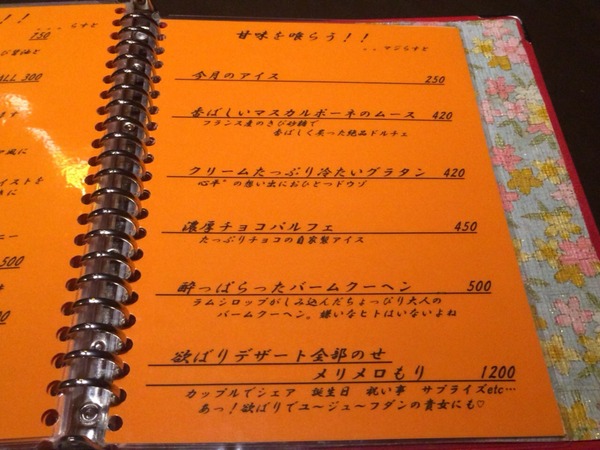 ！！
... らすと
750
び醤油と
ALL 300
ます
ア風に
イストを
きに
ニー
500
甘味を喰らう！！
..マジらすと
今月のアイス 250
香ばしいマスカルポーネのムース 420
フランス産のきび砂糖で
香ばしく炙った絶品ドルチェ
クリームたっぷり冷たいグラタン 420
心平°の想い出におひとつドウゾ
濃厚チョコパルフェ 450
たっぷりチョコの自家製アイス
酔っぱらったバームクーヘン 500
ラムシロップがしみ込んだちょっぴり大人の
バームクーヘン。嫌いなヒトはいないよね
欲ばりデザート全部のせ
メリメロもり 1200
カップルでシェア 誕生日 祝い事 サプライズetc…
あっ！欲ばりでユ〜ジュ〜フダンの貴女にも♡